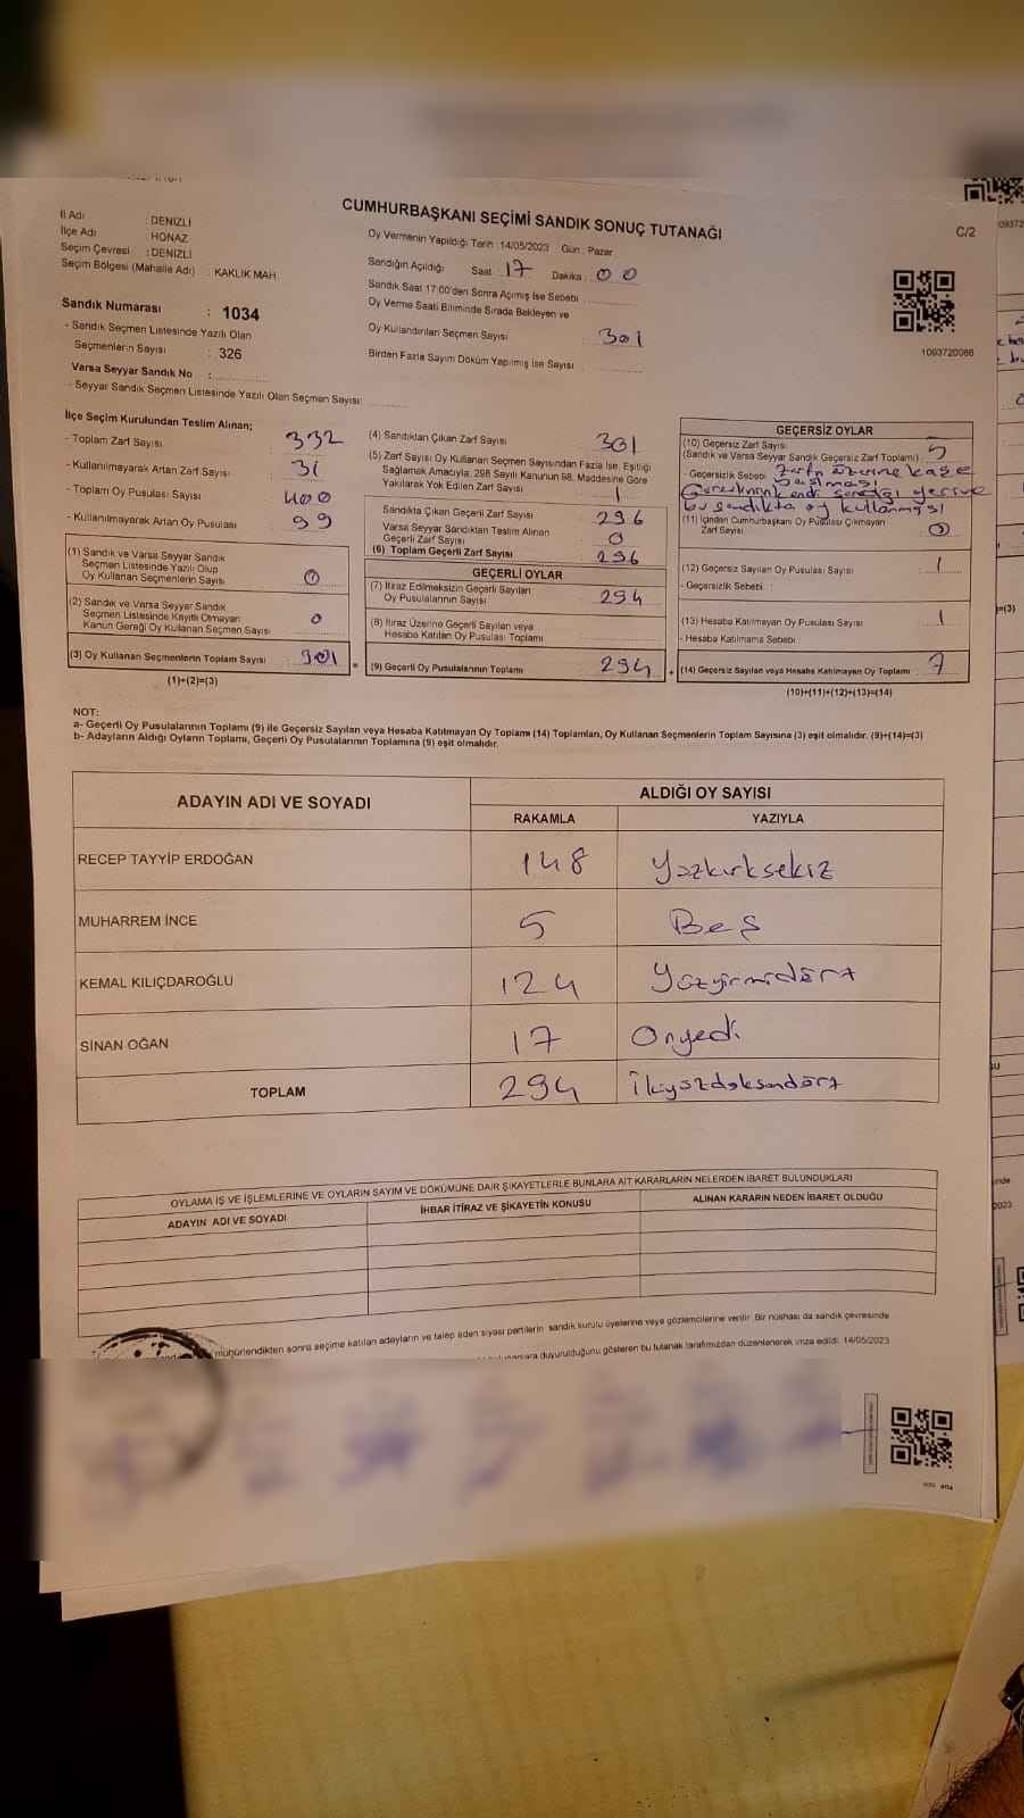 CUMHURBAŞKANI SEÇİMİ SANDIK SONUÇ TUTANAĞI
C/2
İl Adı : DENİZLİ
İlçe Adı : HONAZ
Seçim Çevresi : DENİZLİ
Seçim Bölgesi (Mahalle Adı) : KAKLIK MAH.
Sandık Numarası : 1034
- Sandık Seçmen Listesinde Yazılı Olan
Seçmenlerin Sayısı : 326
Varsa Seyyar Sandık No :
- Seyyar Sandık Seçmen Listesinde Yazılı Olan Seçmen Sayısı:
Oy Vermenin Yapıldığı Tarih : 14/05/2023 Gün : Pazar
Sandığın Açıldığı Saat 17 Dakika : 00
Sandık Saat 17:00'den Sonra Açımış İse Sebebi
Oy Verme Saati Bitiminde Sırada Bekleyen ve
Oy Kullandırılan Seçmen Sayısı 301
Birden Fazla Sayım Döküm Yapılmış İse Sayısı
1093720086
İlçe Seçim Kurulundan Teslim Alınan;
- Toplam Zarf Sayısı 332
- Kullanılmayarak Artan Zarf Sayısı 31
- Toplam Oy Pusulası Sayısı 400
- Kullanılmayarak Artan Oy Pusulası 99
(1) Sandık ve Varsa Seyyar Sandık
Seçmen Listesinde Yazılı Olup
Oy Kullanan Seçmenlerin Sayısı 0
(2) Sandık ve Varsa Seyyar Sandık
Seçmen Listesinde Kayıtlı Olmayan
Kanun Gereği Oy Kullanan Seçmen Sayısı 0
(3) Oy Kullanan Seçmenlerin Toplam Sayısı 301
(1)+(2)=(3)
(4) Sandıktan Çıkan Zarf Sayısı 301
(5) Zarf Sayısı Oy Kullanan Seçmen Sayısından Fazla İse, Eşitliği
Sağlamak Amacıyla, 298 Sayılı Kanunun 98. Maddesine Göre
Yakılarak Yok Edilen Zarf Sayısı 1
Sandıkta Çıkan Geçerli Zarf Sayısı 296
Varsa Seyyar Sandıktan Teslim Alınan
Geçerli Zarf Sayısı 0
(6) Toplam Geçerli Zarf Sayısı 296
GEÇERLİ OYLAR
(7) İtiraz Edilmeksizin Geçerli Sayılan
Oy Pusulalarının Sayısı 294
(8) İtiraz Üzerine Geçerli Sayılan veya
Hesaba Katılan Oy Pusulası Toplamı
(9) Geçerli Oy Pusulalarının Toplamı 294
GEÇERSİZ OYLAR
(10) Geçersiz Zarf Sayısı 5
(Sandık ve Varsa Seyyar Sandık Geçersiz Zarf Toplamı)
- Geçersizlik Sebebi: Zarfın üzerine kaşe
basılması
kendi sandığı yerine
bu sandıkta oy kullanmışı
(11) İçinden Cumhurbaşkanı Oy Pusulası Çıkmayan
Zarf Sayısı 0
(12) Geçersiz Sayılan Oy Pusulası Sayısı 1
- Geçersizlik Sebebi :
(13) Hesaba Katılmayan Oy Pusulası Sayısı 1
- Hesaba Katılmama Sebebi
(14) Geçersiz Sayılan veya Hesaba Katılmayan Oy Toplamı 7
(10)+(11)+(12)+(13)=(14)
NOT:
a- Geçerli Oy Pusulalarının Toplamı (9) ile Geçersiz Sayılan veya Hesaba Katılmayan Oy Toplamı (14) Toplamları, Oy Kullanan Seçmenlerin Toplam Sayısına (3) eşit olmalıdır. (9)+(14)=(3)
b- Adayların Aldığı Oyların Toplamı, Geçerli Oy Pusulalarının Toplamına (9) eşit olmalıdır.
ADAYIN ADI VE SOYADI ALDIĞI OY SAYISI
RAKAMLA YAZIYLA
RECEP TAYYİP ERDOĞAN 148 Yüzkırksekiz
MUHARREM İNCE 5 Beş
KEMAL KILIÇDAROĞLU 124 Yüzyirmidört
SİNAN OĞAN 17 Onyedi
TOPLAM 294 İkiyüzdoksandört
OYLAMA İŞ VE İŞLEMLERİNE VE OYLARIN SAYIM VE DÖKÜMÜNE DAİR ŞİKAYETLERLE BUNLARA AİT KARARLARIN NELERDEN İBARET BULUNDUKLARI
ADAYIN ADI VE SOYADI İHBAR İTİRAZ VE ŞİKAYETİN KONUSU ALINAN KARARIN NEDEN İBARET OLDUĞU
mühürlendikten sonra seçime katılan adayların ve talep eden siyasi partilerin sandık kurulu üyelerine veya gözlemcilerine verilir. Bir nüshası da sandık çevresinde
duyurulduğunu gösteren bu tutanak tarafımızdan düzenlenerek imza edildi. 14/05/2023